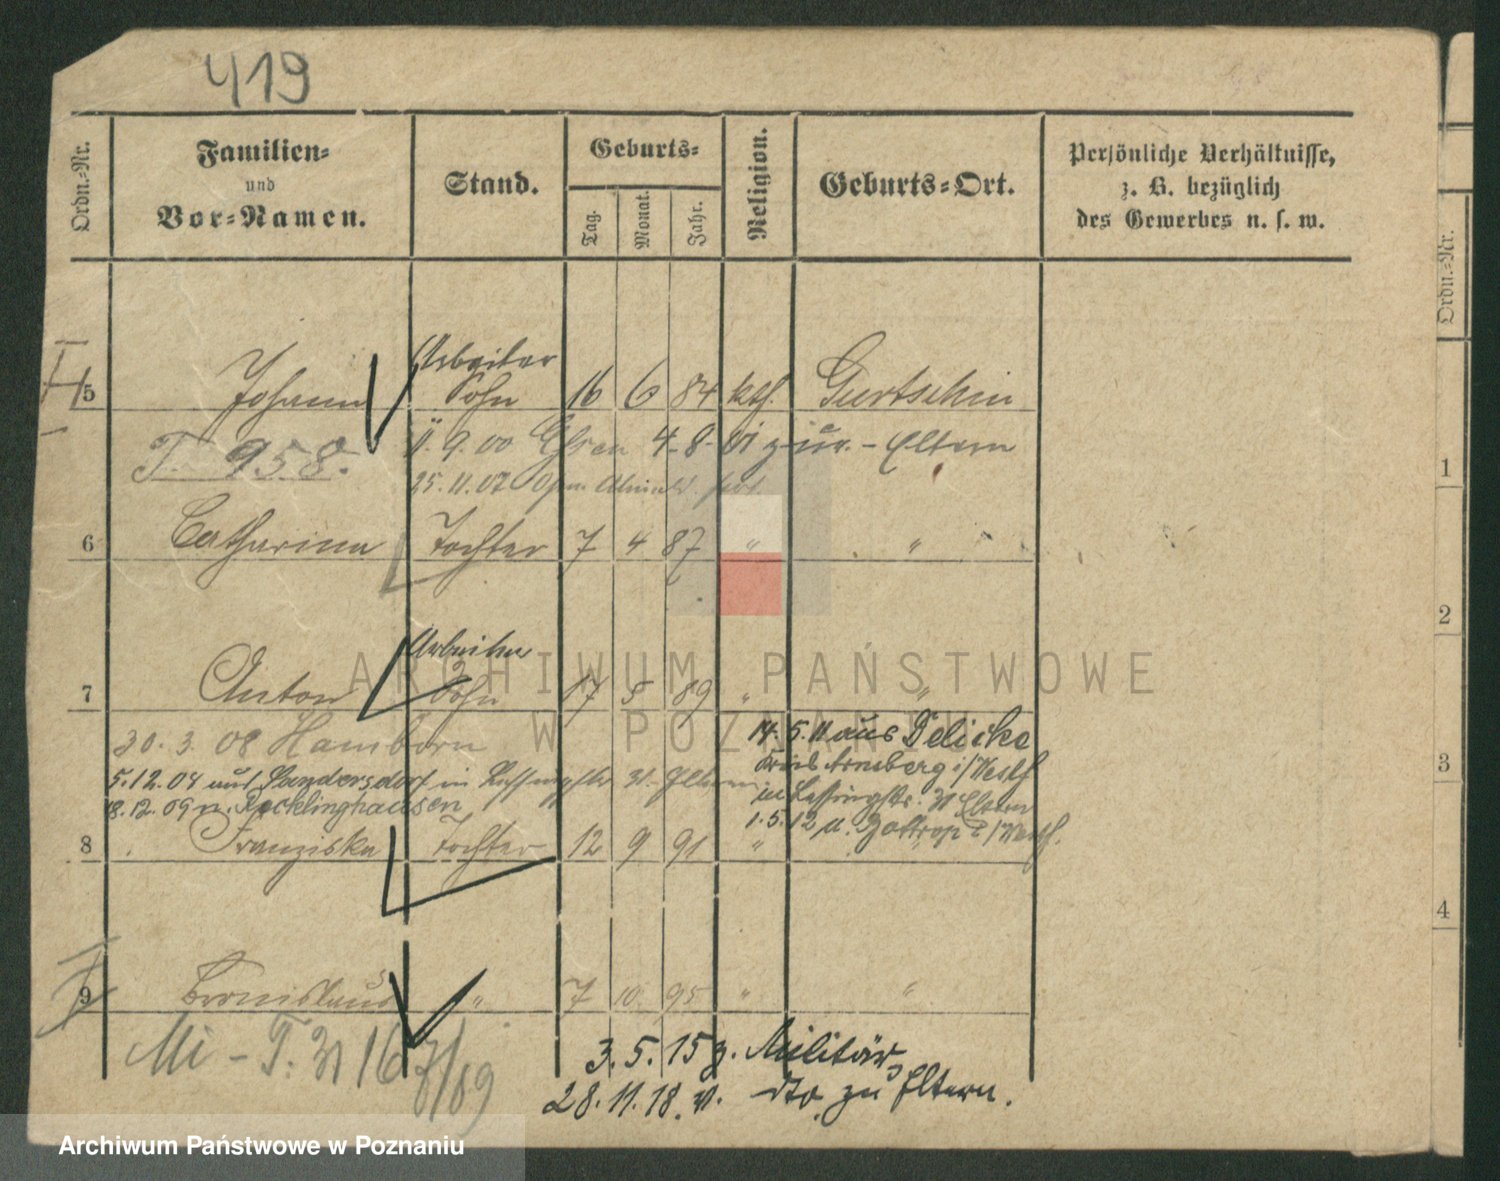 419
Ordn.-Nr. Familien- und Vor-Namen. Stand. Geburts- Tag. Monat. Jahr. Religion. Geburts-Ort. Persönliche Verhältnisse, z. B. bezüglich des Gewerbes u. s. w.
Arbeiter
5 Johann Sohn 16 6 84 kth. Gurtschin
11.9.00 Essen 4-8-01 zur. - Eltern
T. 958.
25.11.07
6 Catharina Tochter 7 4 87 " "
Arbeiter
7 Anton Sohn 17 5 89 " "
30.3.08 Hamborn
14.5.11 aus Delicke
Kreis Arnsberg i/Westf
5.12.04 aus Sandersdorf in 31. Eltern
in Lessingstr. 31 Eltern
8.12.09 n. Recklinghausen
1.5.12 n. Bottrop i/Westf.
8 Franziska Tochter 12 9 91 "
9 Bronislaus " 7 10 95 " "
Mi - T. 31 16 7/89
3.5.15 z. Militär
28.11.18 v. dto. zu Eltern.
Ordn.-Nr.
1
2
3
4
ARCHIWUM PAŃSTWOWE
W POZNANIU
Archiwum Państwowe w Poznaniu